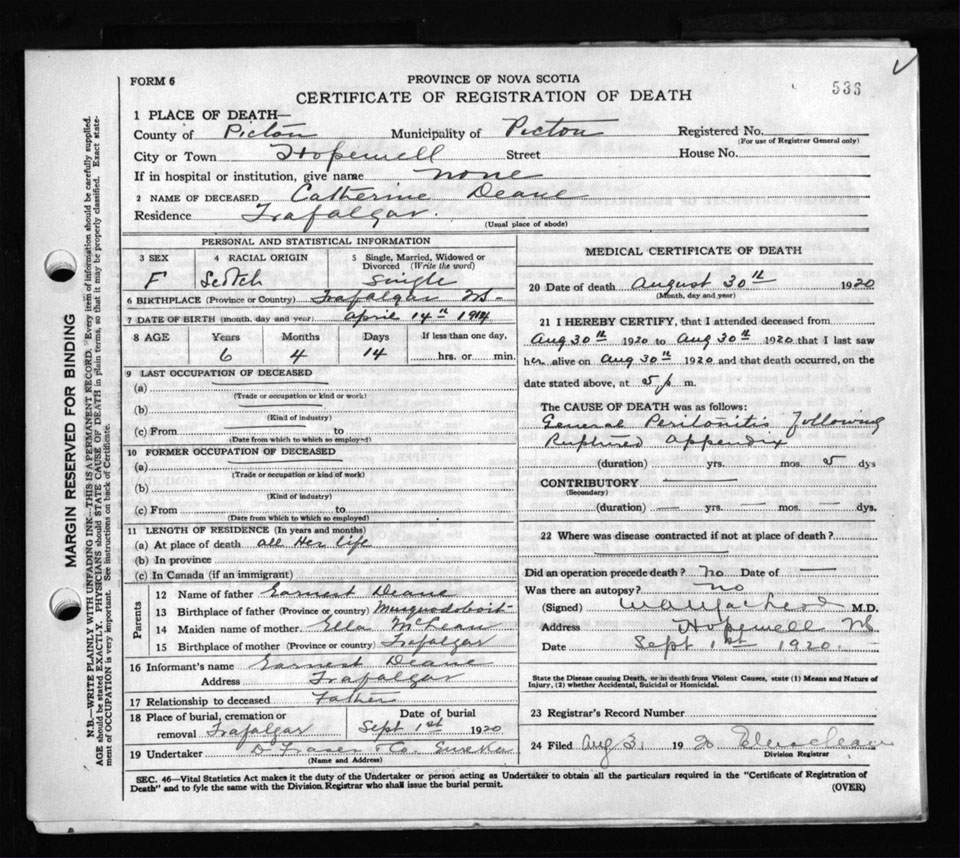 FORM 6
PROVINCE OF NOVA SCOTIA
533
CERTIFICATE OF REGISTRATION OF DEATH
1 PLACE OF DEATH—
County of Pictou Municipality of Pictou Registered No.
(For use of Registrar General only)
City or Town Hopewell Street House No.
If in hospital or institution, give name none
2 NAME OF DECEASED Catherine Deane
Residence Trafalgar.
(Usual place of abode)
PERSONAL AND STATISTICAL INFORMATION
3 SEX 4 RACIAL ORIGIN 5 Single, Married, Widowed or Divorced (Write the word)
F Scotch Single
6 BIRTHPLACE (Province or Country) Trafalgar NS-
7 DATE OF BIRTH (month, day and year) April 14th 1914
8 AGE Years Months Days If less than one day,
6 4 14 hrs. or min.
9 LAST OCCUPATION OF DECEASED
(a)
(Trade or occupation or kind or work)
(b)
(Kind of industry)
(c) From to
(Date from which to which so employed)
10 FORMER OCCUPATION OF DECEASED
(a)
(Trade or occupation or kind of work)
(b)
(Kind of industry)
(c) From to
(Date from which to which so employed)
11 LENGTH OF RESIDENCE (In years and months)
(a) At place of death all Her life
(b) In province
(c) In Canada (if an immigrant)
Parents
12 Name of father Earnest Deane
13 Birthplace of father (Province or country) Musquodoboit
14 Maiden name of mother Ella McLean
15 Birthplace of mother (Province or country) Trafalgar
16 Informant's name Earnest Deane
Address Trafalgar
17 Relationship to deceased Father
18 Place of burial, cremation or removal Trafalgar
Date of burial
Sept 1st 1920
19 Undertaker D Fraser & Co. Eureka
(Name and Address)
MEDICAL CERTIFICATE OF DEATH
20 Date of death August 30th 1920
(Month, day and year)
21 I HEREBY CERTIFY, that I attended deceased from
Aug 30th 1920 to Aug 30th 1920 that I last saw
her alive on Aug 30th 1920 and that death occurred, on the
date stated above, at 5 p m.
The CAUSE OF DEATH was as follows:
General Peritonitis following
Ruptured appendix
(duration) yrs. mos. 5 dys
CONTRIBUTORY
(Secondary)
(duration) — yrs. — mos. — dys.
22 Where was disease contracted if not at place of death?
Did an operation precede death? No Date of —
Was there an autopsy? no
(Signed) M.D.
Address Hopewell NS
Date Sept 1st 1920.
State the Disease causing Death, or in death from Violent Causes, state (1) Means and Nature of
Injury, (2) whether Accidental, Suicidal or Homicidal.
23 Registrar's Record Number
24 Filed Aug 31 1920
Division Registrar
SEC. 46—Vital Statistics Act makes it the duty of the Undertaker or person acting as Undertaker to obtain all the particulars required in the "Certificate of Registration of
Death" and to fyle the same with the Division Registrar who shall issue the burial permit.
(OVER)
MARGIN RESERVED FOR BINDING
N.B.—WRITE PLAINLY WITH UNFADING INK—THIS IS A PERMANENT RECORD. Every item of information should be carefully supplied.
AGE should be stated EXACTLY. PHYSICIANS should STATE CAUSE OF DEATH in plain terms, so that it may be properly classified. Exact state-
ment of OCCUPATION is very important. See instructions on back of Certificate.